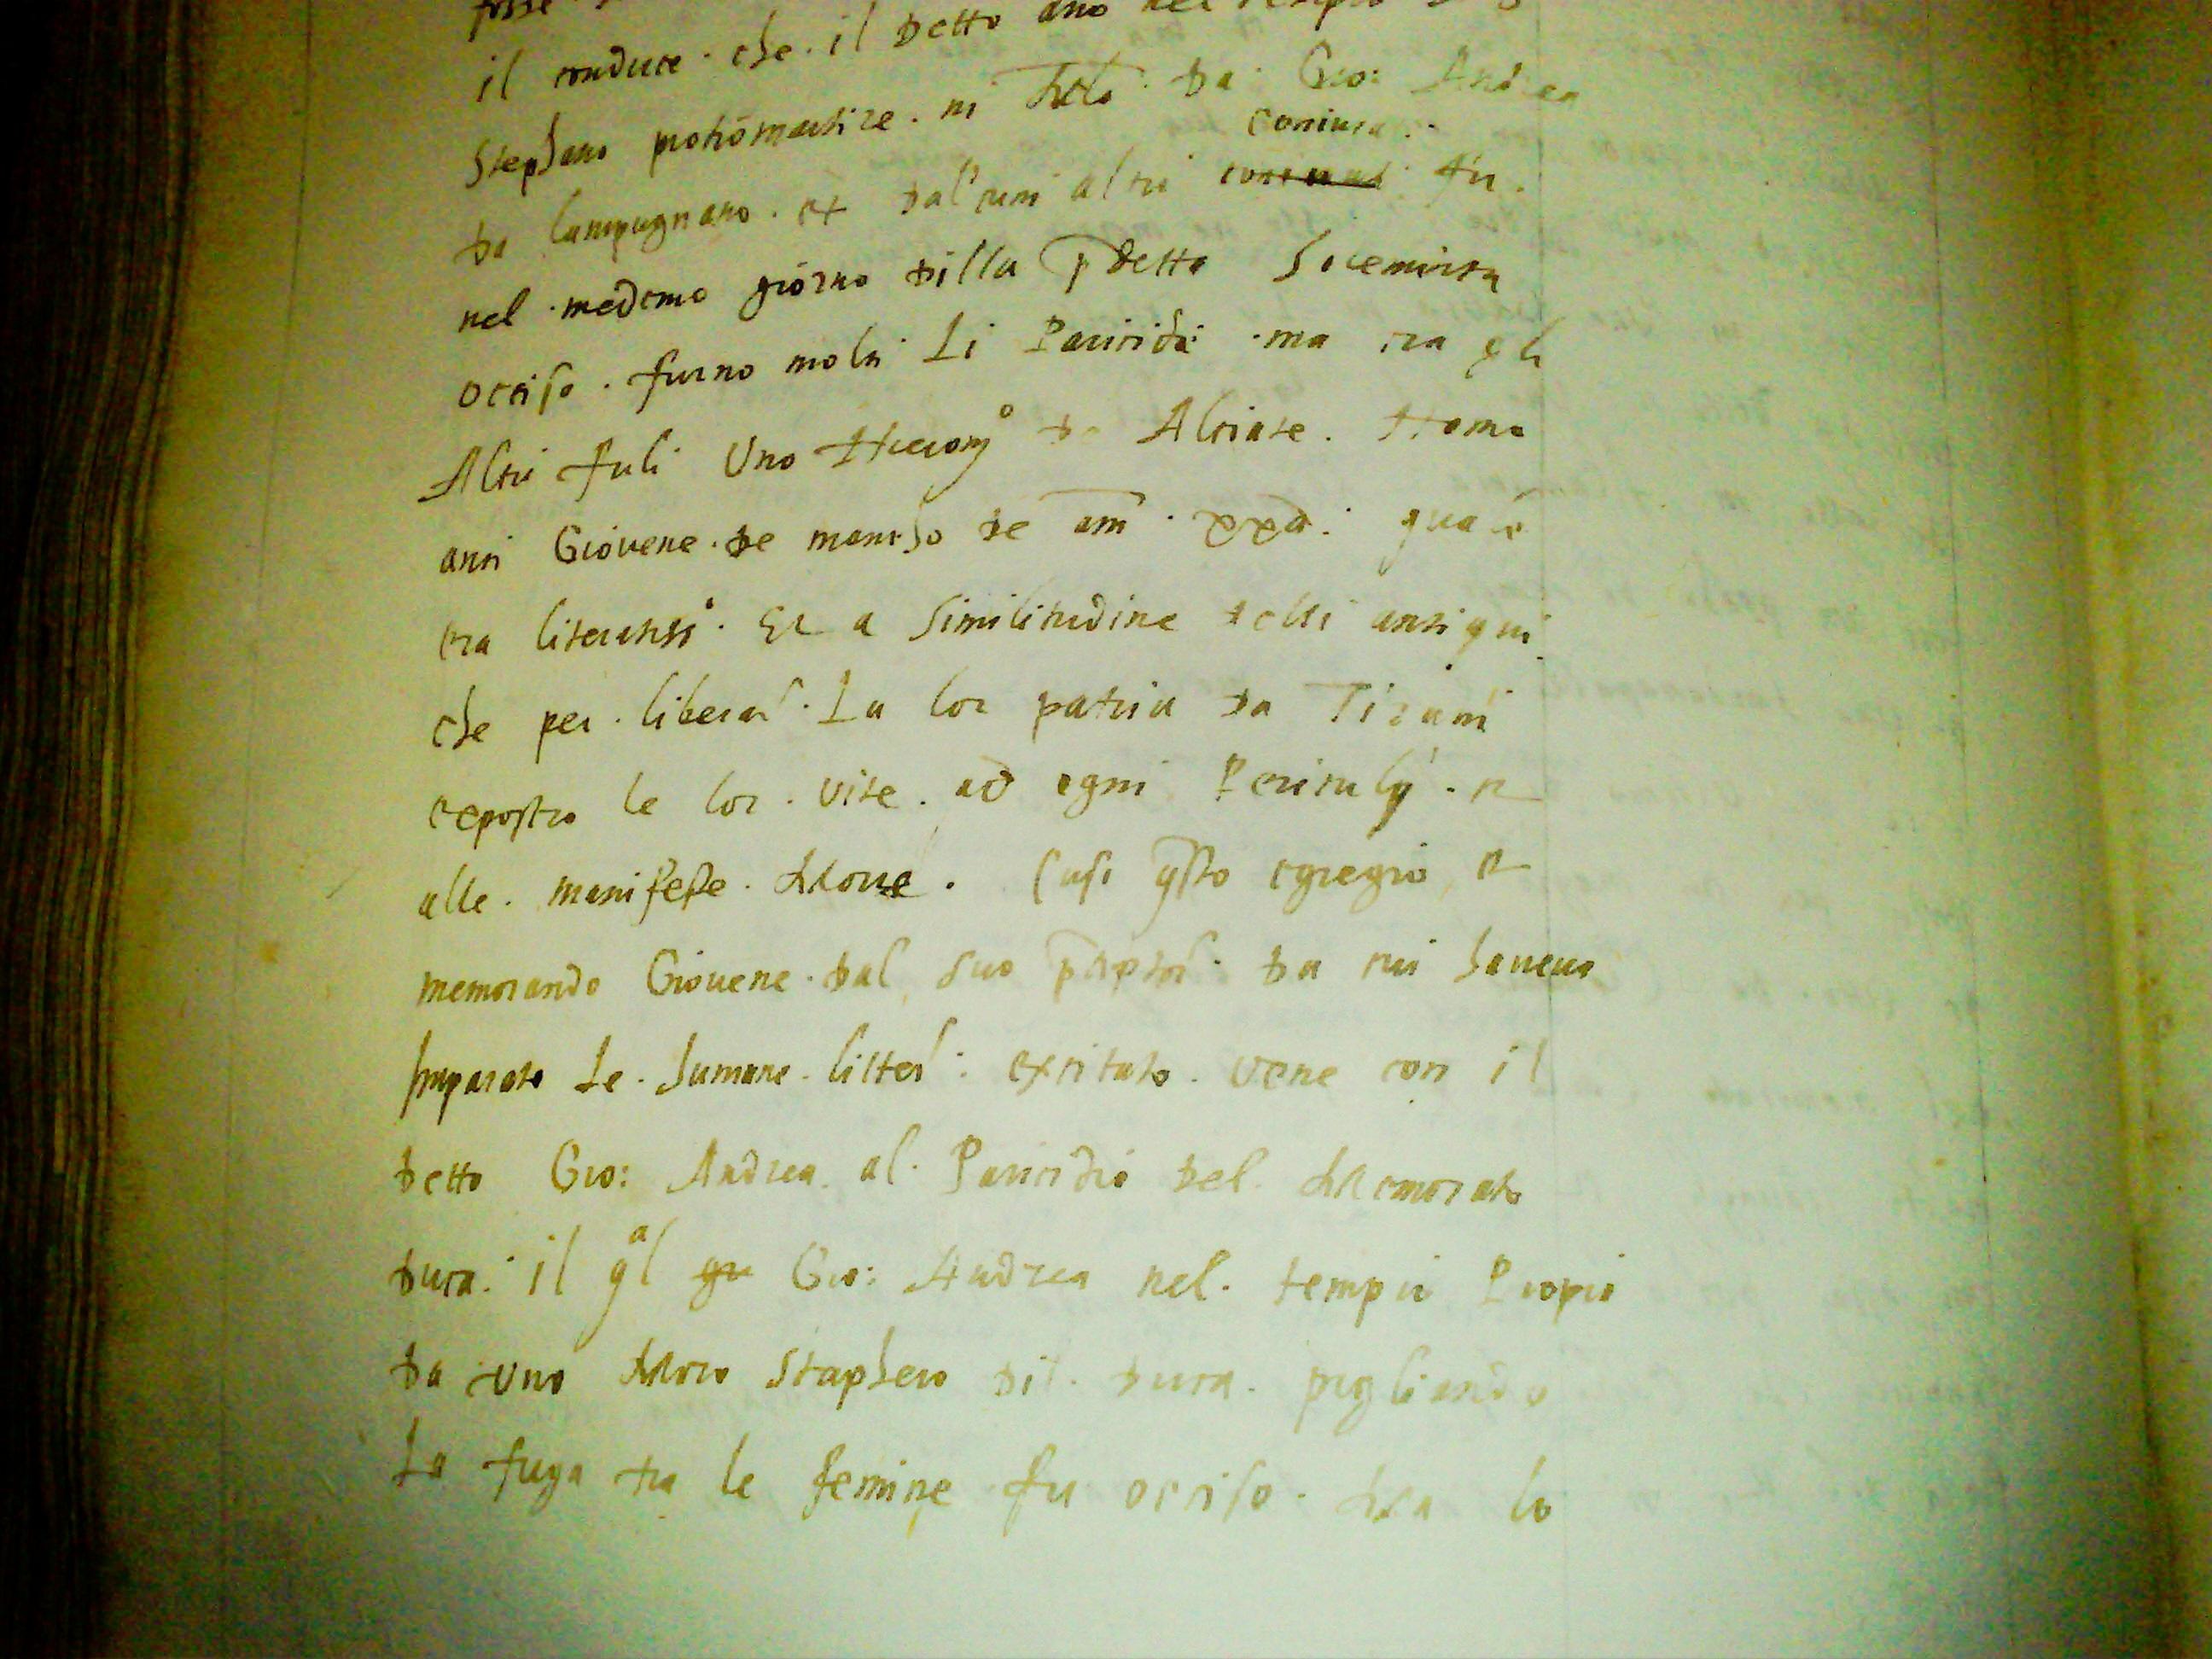 fosse
il conduce · che · il detto ano del tempio
Stephano protomartire · in Mlō · da Gio: Andrea
da lampugnano · et dal'cuni altri coniurati fu ·
nel · medemo giorno dilla pdetta Solemnita
occiso · furno molti Li Paricidi · ma tra gli
Altri fuli Uno Hieronyo da Alciate · Homo
anzi Giovene · de mancho de anni · xxii · qual
era literatissο · Et a Similitudine delli antiqui
che per · liberar · La lor patria da Tirani
exposero le lor · vite · ad ogni Periculij · et
alle · manifeste · Morte · Cusi qsto egregio et
memorando Giovene · dal suo pceptor · da cui haveva
Imparato Le · humane · litter · excitato · vene con il
detto Gio: Andrea al · Paricidio del · Memorato
duca · il qal Gio: Andrea nel · tempio Propio
da Uno Moro Staphero dil · duca · pigliando
La fuga tra le femine fu occiso · Ma lo